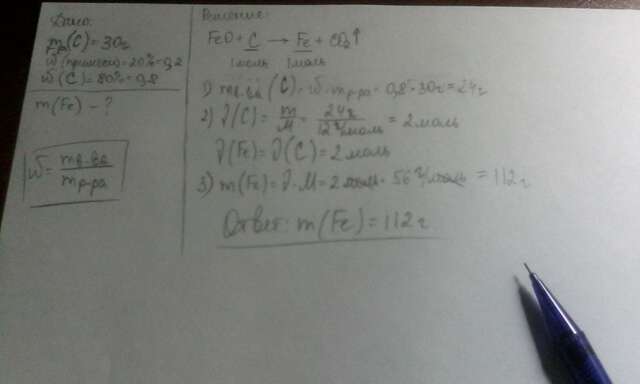 Дано:
m р-ра (C) = 30г
ω (примеси) = 20% = 0,2
ω (C) = 80% = 0,8
m(Fe) - ?
ω = m в-ва / m р-ра
Решение:
FeO + C → Fe + CO₂↑
1моль 1моль
1) m в-ва (C) = ω · m р-ра = 0,8 · 30г = 24г
2) ν(C) = m / M = 24г / 12 г/моль = 2 моль
ν(Fe) = ν(C) = 2 моль
3) m(Fe) = ν · M = 2 моль · 56 г/моль = 112 г
Ответ: m(Fe) = 112 г